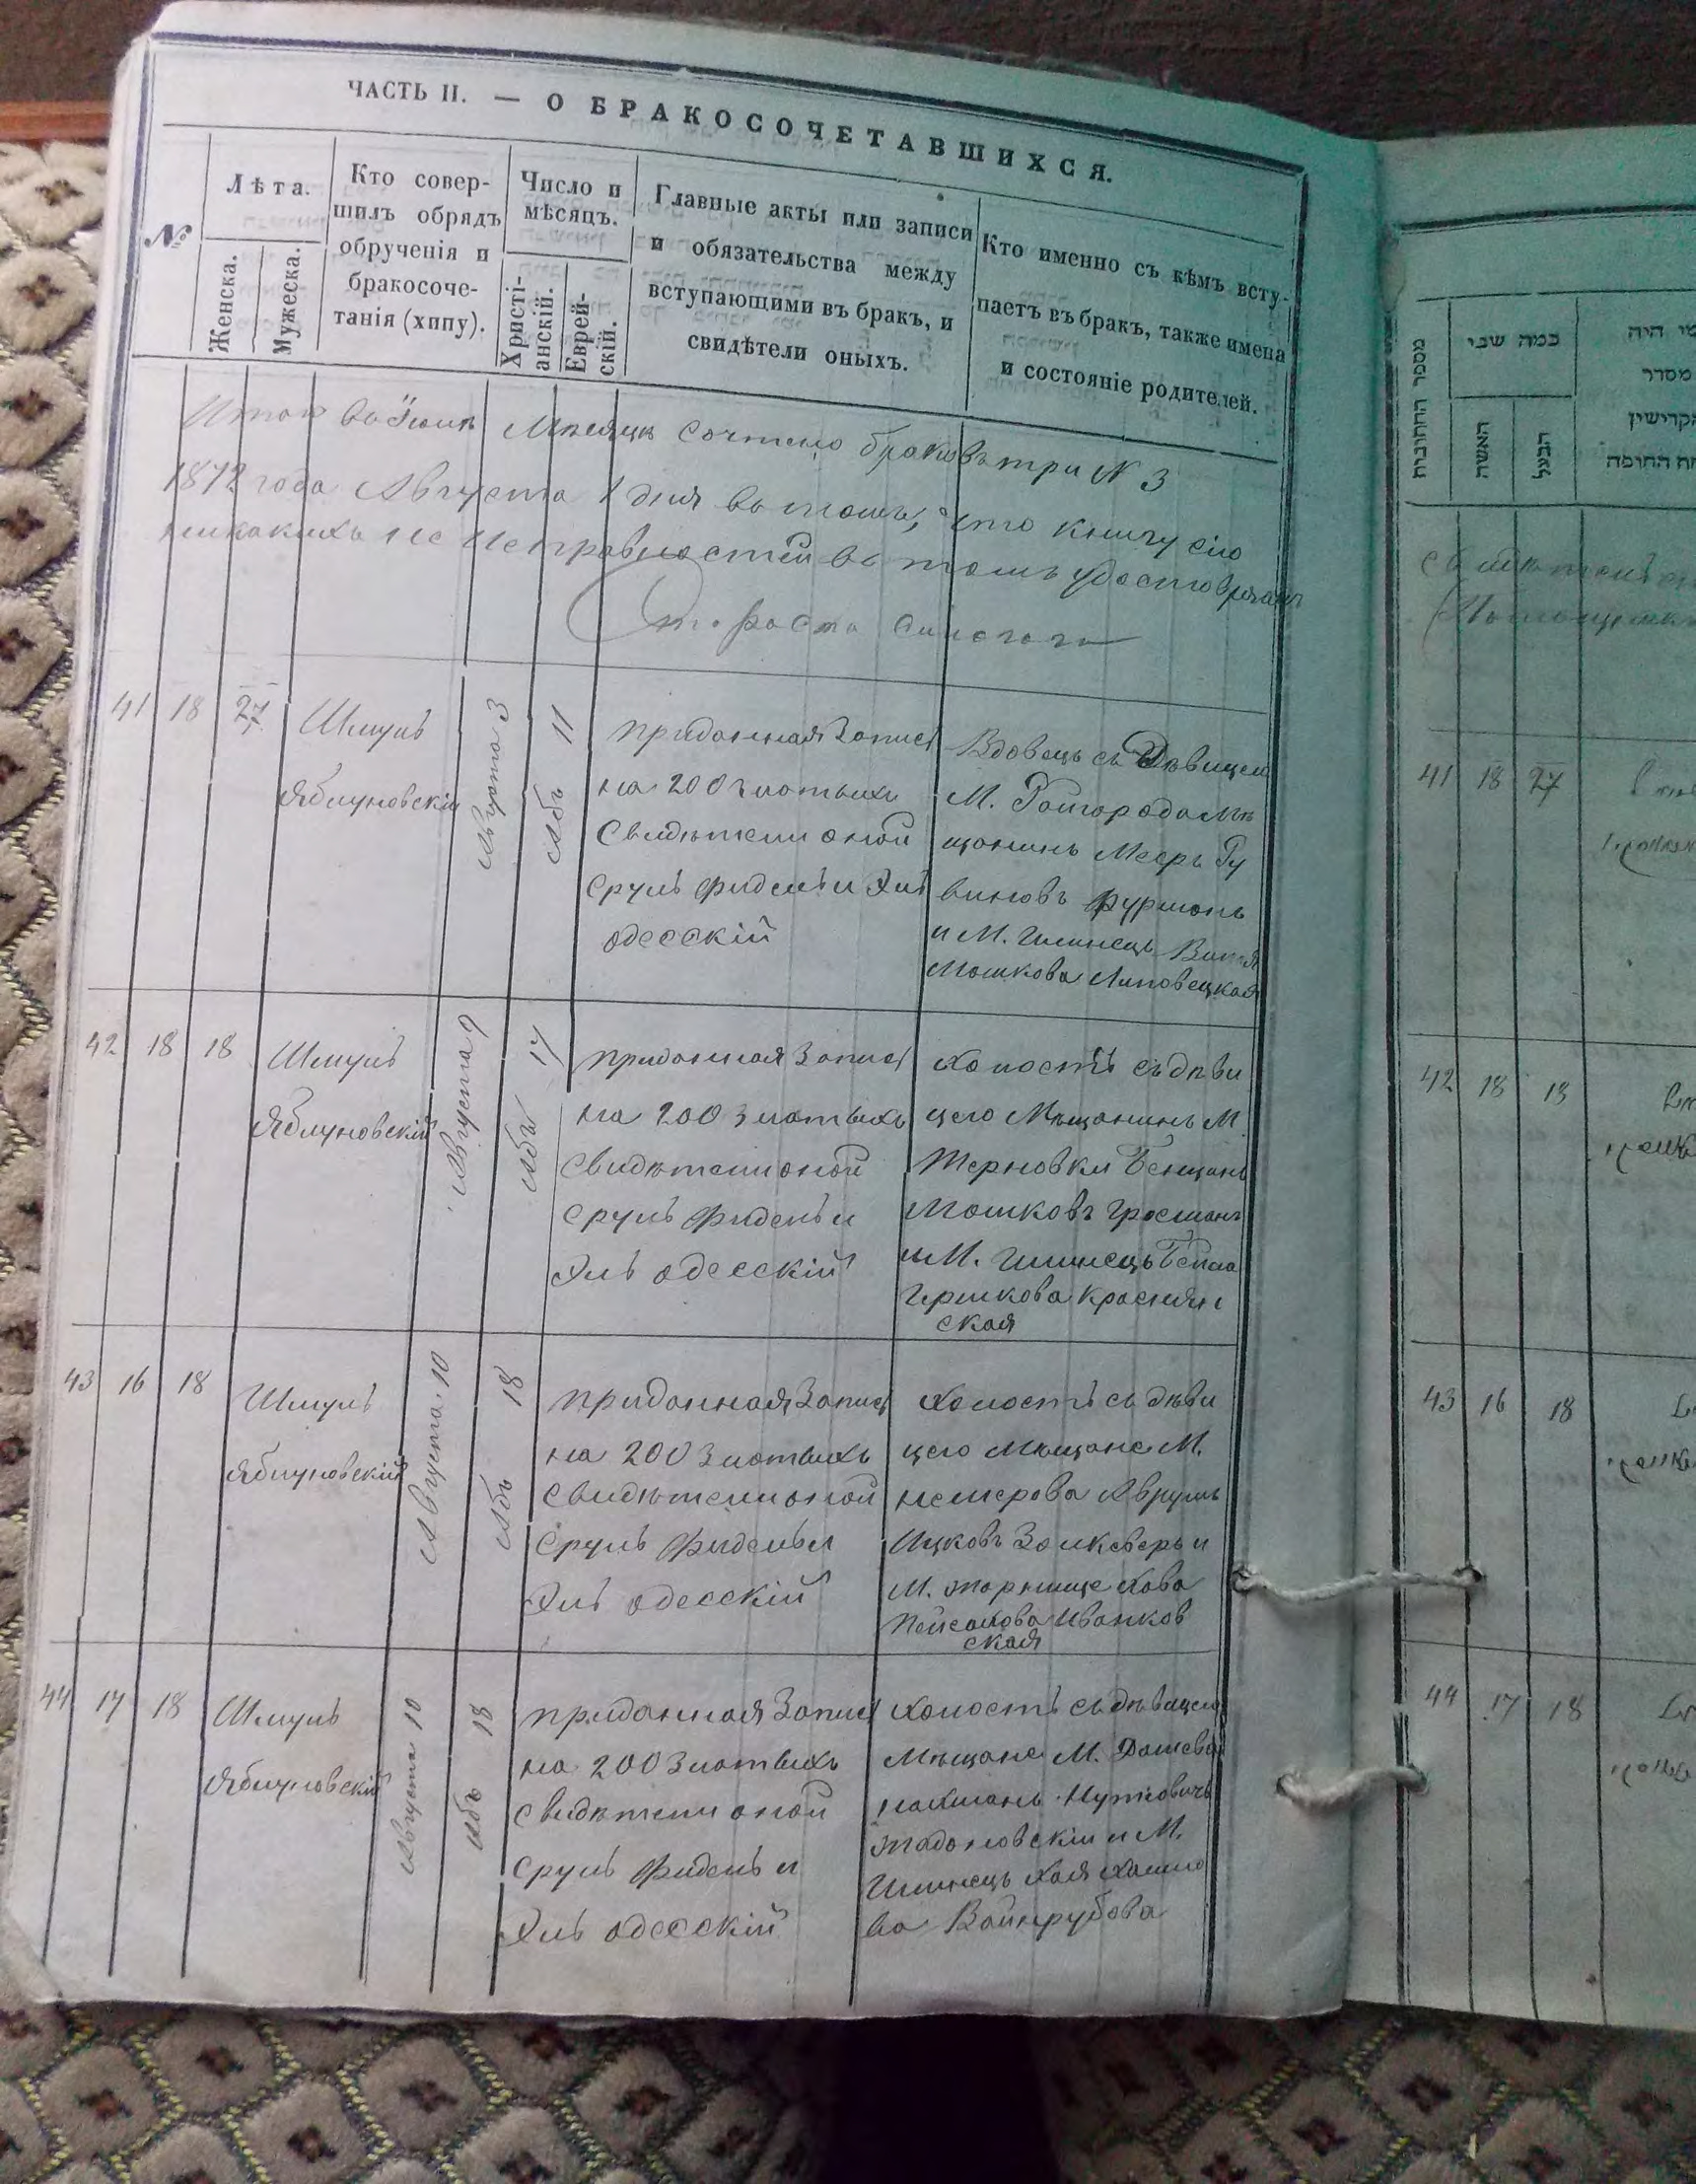 ЧАСТЬ II. — О БРАКОСОЧЕТАВШИХСЯ.
№
Лѣта.
Женска.
Мужеска.
Кто совер-
шилъ обрядъ
обрученія и
бракосоче-
танія (хппу).
Число и
мѣсяцъ.
Христі-
анскій.
Еврей-
скій.
Главные акты или записи
и обязательства между
вступающими въ бракъ, и
свидѣтели оныхъ.
Кто именно съ кѣмъ всту-
паетъ въ бракъ, также имена
и состояніе родителей.
Итого въ Iюнѣ Мѣсяцѣ сочтено браковъ три N 3
1872 года Августа 1 дня въ томъ, что книгу сію
никакихъ не исправностей въ томъ удостовряемъ
Староста синагоги
41 18 27
Шмуль
Яблуновскій
Августа 3
Абъ 11
приданная Запись
на 200 злотыхъ
Свидѣтели оной
Сруль Фидель и Эль
одесскій
Вдовецъ съ Дѣвицею
М. Ротгорода Мѣ
щанинъ Мееръ Ру
виновъ Фурманъ
и М. Илинецъ
Мошкова Липовецкая
42 18 18
Шмуль
Яблуновскій
Августа 9
Абъ 17
приданная Запись
на 200 злотыхъ
Свидѣтели оной
Сруль Фидель и
Эль одесскій
Холостъ съ дѣви
цею Мѣщанинъ М.
Терновки Бенционъ
Мошковъ Гросманъ
и М. Илинецъ Бейла
Гершкова Краснян
ская
43 16 18
Шмуль
Яблуновскій
Августа 10
Абъ 18
приданная Запись
на 200 злотыхъ
Свидѣтели оной
Сруль Фидель и
Эль одесскій
Холостъ съ дѣви
цею Мѣщане М.
Немерова Аврумъ
Ицковъ и
М. Хава
Пейсахова Иванков
ская
44 17 18
Шмуль
Яблуновскій
Августа 10
Абъ 18
приданная Запись
на 200 злотыхъ
Свидѣтели оной
Сруль Фидель и
Эль одесскій
Холостъ съ дѣвицею
Мѣщане М. Дашева
Нахманъ
и М.
Илинецъ Хая Хаимо
ва Вайнрубова
מספר החתונות
כמה שני
האשה
הבעל
מי היה
מסדר
הקדושין
תחת החופה
41 18 27
42 18 18
43 16 18
44 17 18